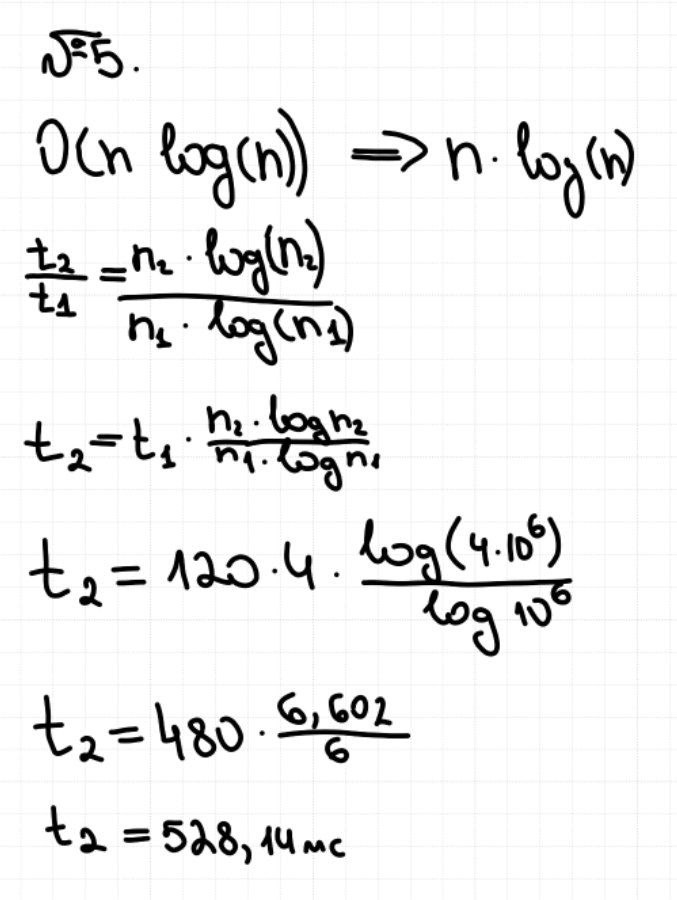 №5.
O(n log(n)) => n · log(n)
t₂/t₁ = n₂ · log(n₂) / n₁ · log(n1)
t₂ = t₁ · n₂ · log n₂ / n₁ · log n₁
t₂ = 120 · 4 · log(4·10⁶) / log 10⁶
t₂ = 480 · 6,602 / 6
t₂ = 528,14 мс